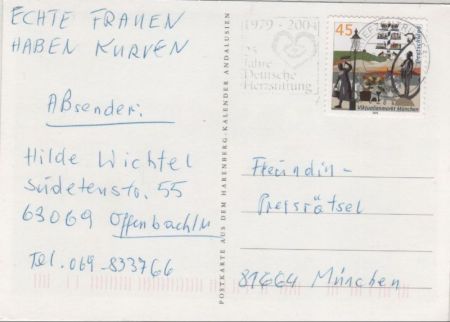 ECHTE FRAUEN
HABEN KURVEN
Absender:
Hilde Wichtel
Sudetenstr. 55
63069 Offenbach/M
Tel. 069-833766
POSTKARTE AUS DEM HARENBERG-KALENDER ANDALUSIEN
1979 - 2004
25
Jahre
Deutsche
Herzstiftung
45
Viktualienmarkt München
Freundin-
Preisrätsel
81664 München